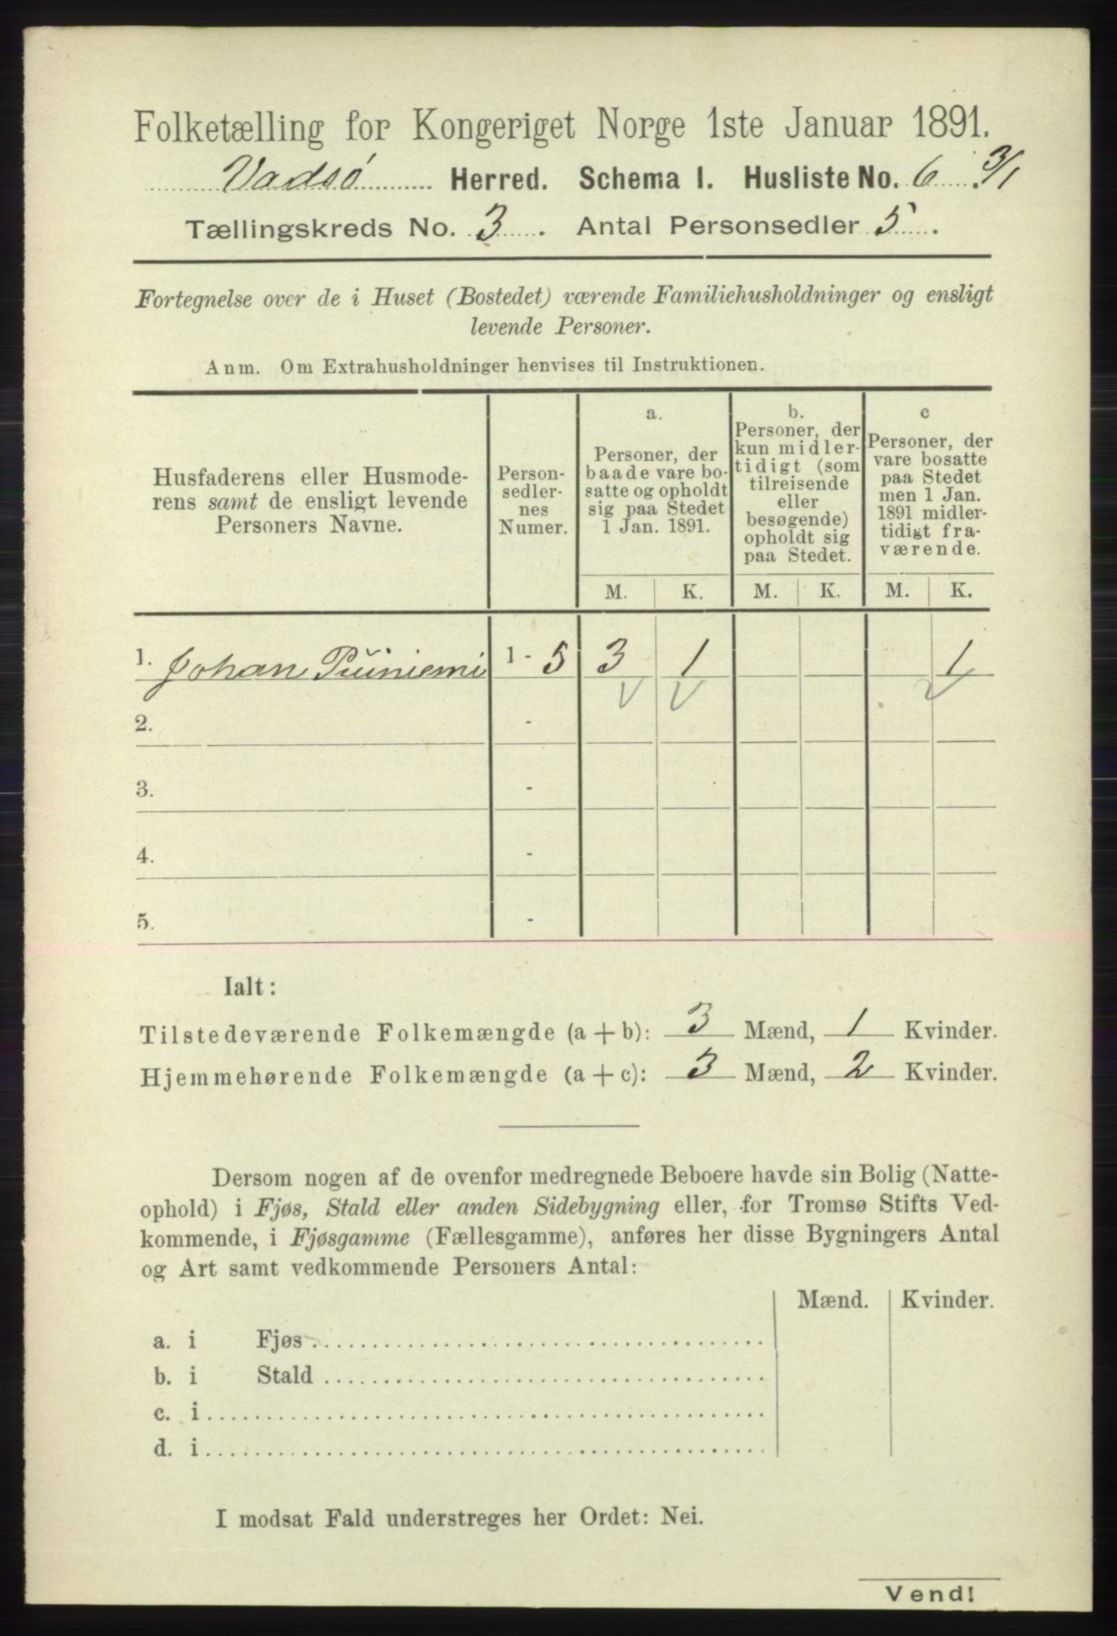 Folketælling for Kongeriget Norge 1ste Januar 1891.
Vadsö Herred. Schema I. Husliste No. 6 3/1
Tællingskreds No. 3. Antal Personsedler 5.
Fortegnelse over de i Huset (Bostedet) værende Familiehusholdninger og ensligt
levende Personer.
Anm. Om Extrahusholdninger henvises til Instruktionen.
Husfaderens eller Husmode-
rens samt de ensligt levende
Personers Navne.
Person-
sedler-
nes
Numer.
a.
Personer, der
baade vare bo-
satte og opholdt
sig paa Stedet
1 Jan. 1891.
b.
Personer, der
kun midler-
tidigt (som
tilreisende
eller
besøgende)
opholdt sig
paa Stedet.
c
Personer, der
vare bosatte
paa Stedet
men 1 Jan.
1891 midler-
tidigt fra-
værende.
M. K. M. K. M. K.
1. Johan Puiniemi 1 - 5 3 1 1
2. -
3. -
4. -
5. -
Ialt:
Tilstedeværende Folkemængde (a + b): 3 Mænd, 1 Kvinder.
Hjemmehørende Folkemængde (a + c): 3 Mænd, 2 Kvinder.
Dersom nogen af de ovenfor medregnede Beboere havde sin Bolig (Natte-
ophold) i Fjøs, Stald eller anden Sidebygning eller, for Tromsø Stifts Ved-
kommende, i Fjøsgamme (Fællesgamme), anføres her disse Bygningers Antal
og Art samt vedkommende Personers Antal:
Mænd. Kvinder.
a. i Fjøs
b. i Stald
c. i
d. i
I modsat Fald understreges her Ordet: Nei.
Vend!